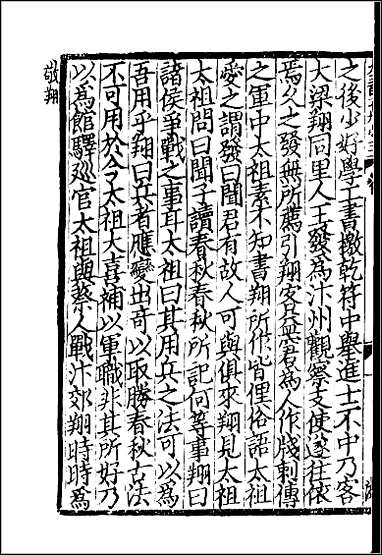 之後少好學工書檄乾符中舉進士不中乃客
大梁翔同里人王發為汴州觀察支使遂往依
焉久之發無所薦引翔客益窘為人作牋刺傳
之軍中太祖素不知書翔所作皆俚俗語太祖
愛之謂發曰聞君有故人可與俱來翔見太祖
太祖問曰聞子讀春秋春秋所記何等事翔曰
諸侯爭戰之事耳太祖曰其用兵之法可以為
吾用乎翔曰兵者應變出奇以取勝春秋古法
不可用於今太祖大喜補以軍職非其所好乃
以為館驛巡官太祖與蔡人戰汴郊翔時時為
敬翔